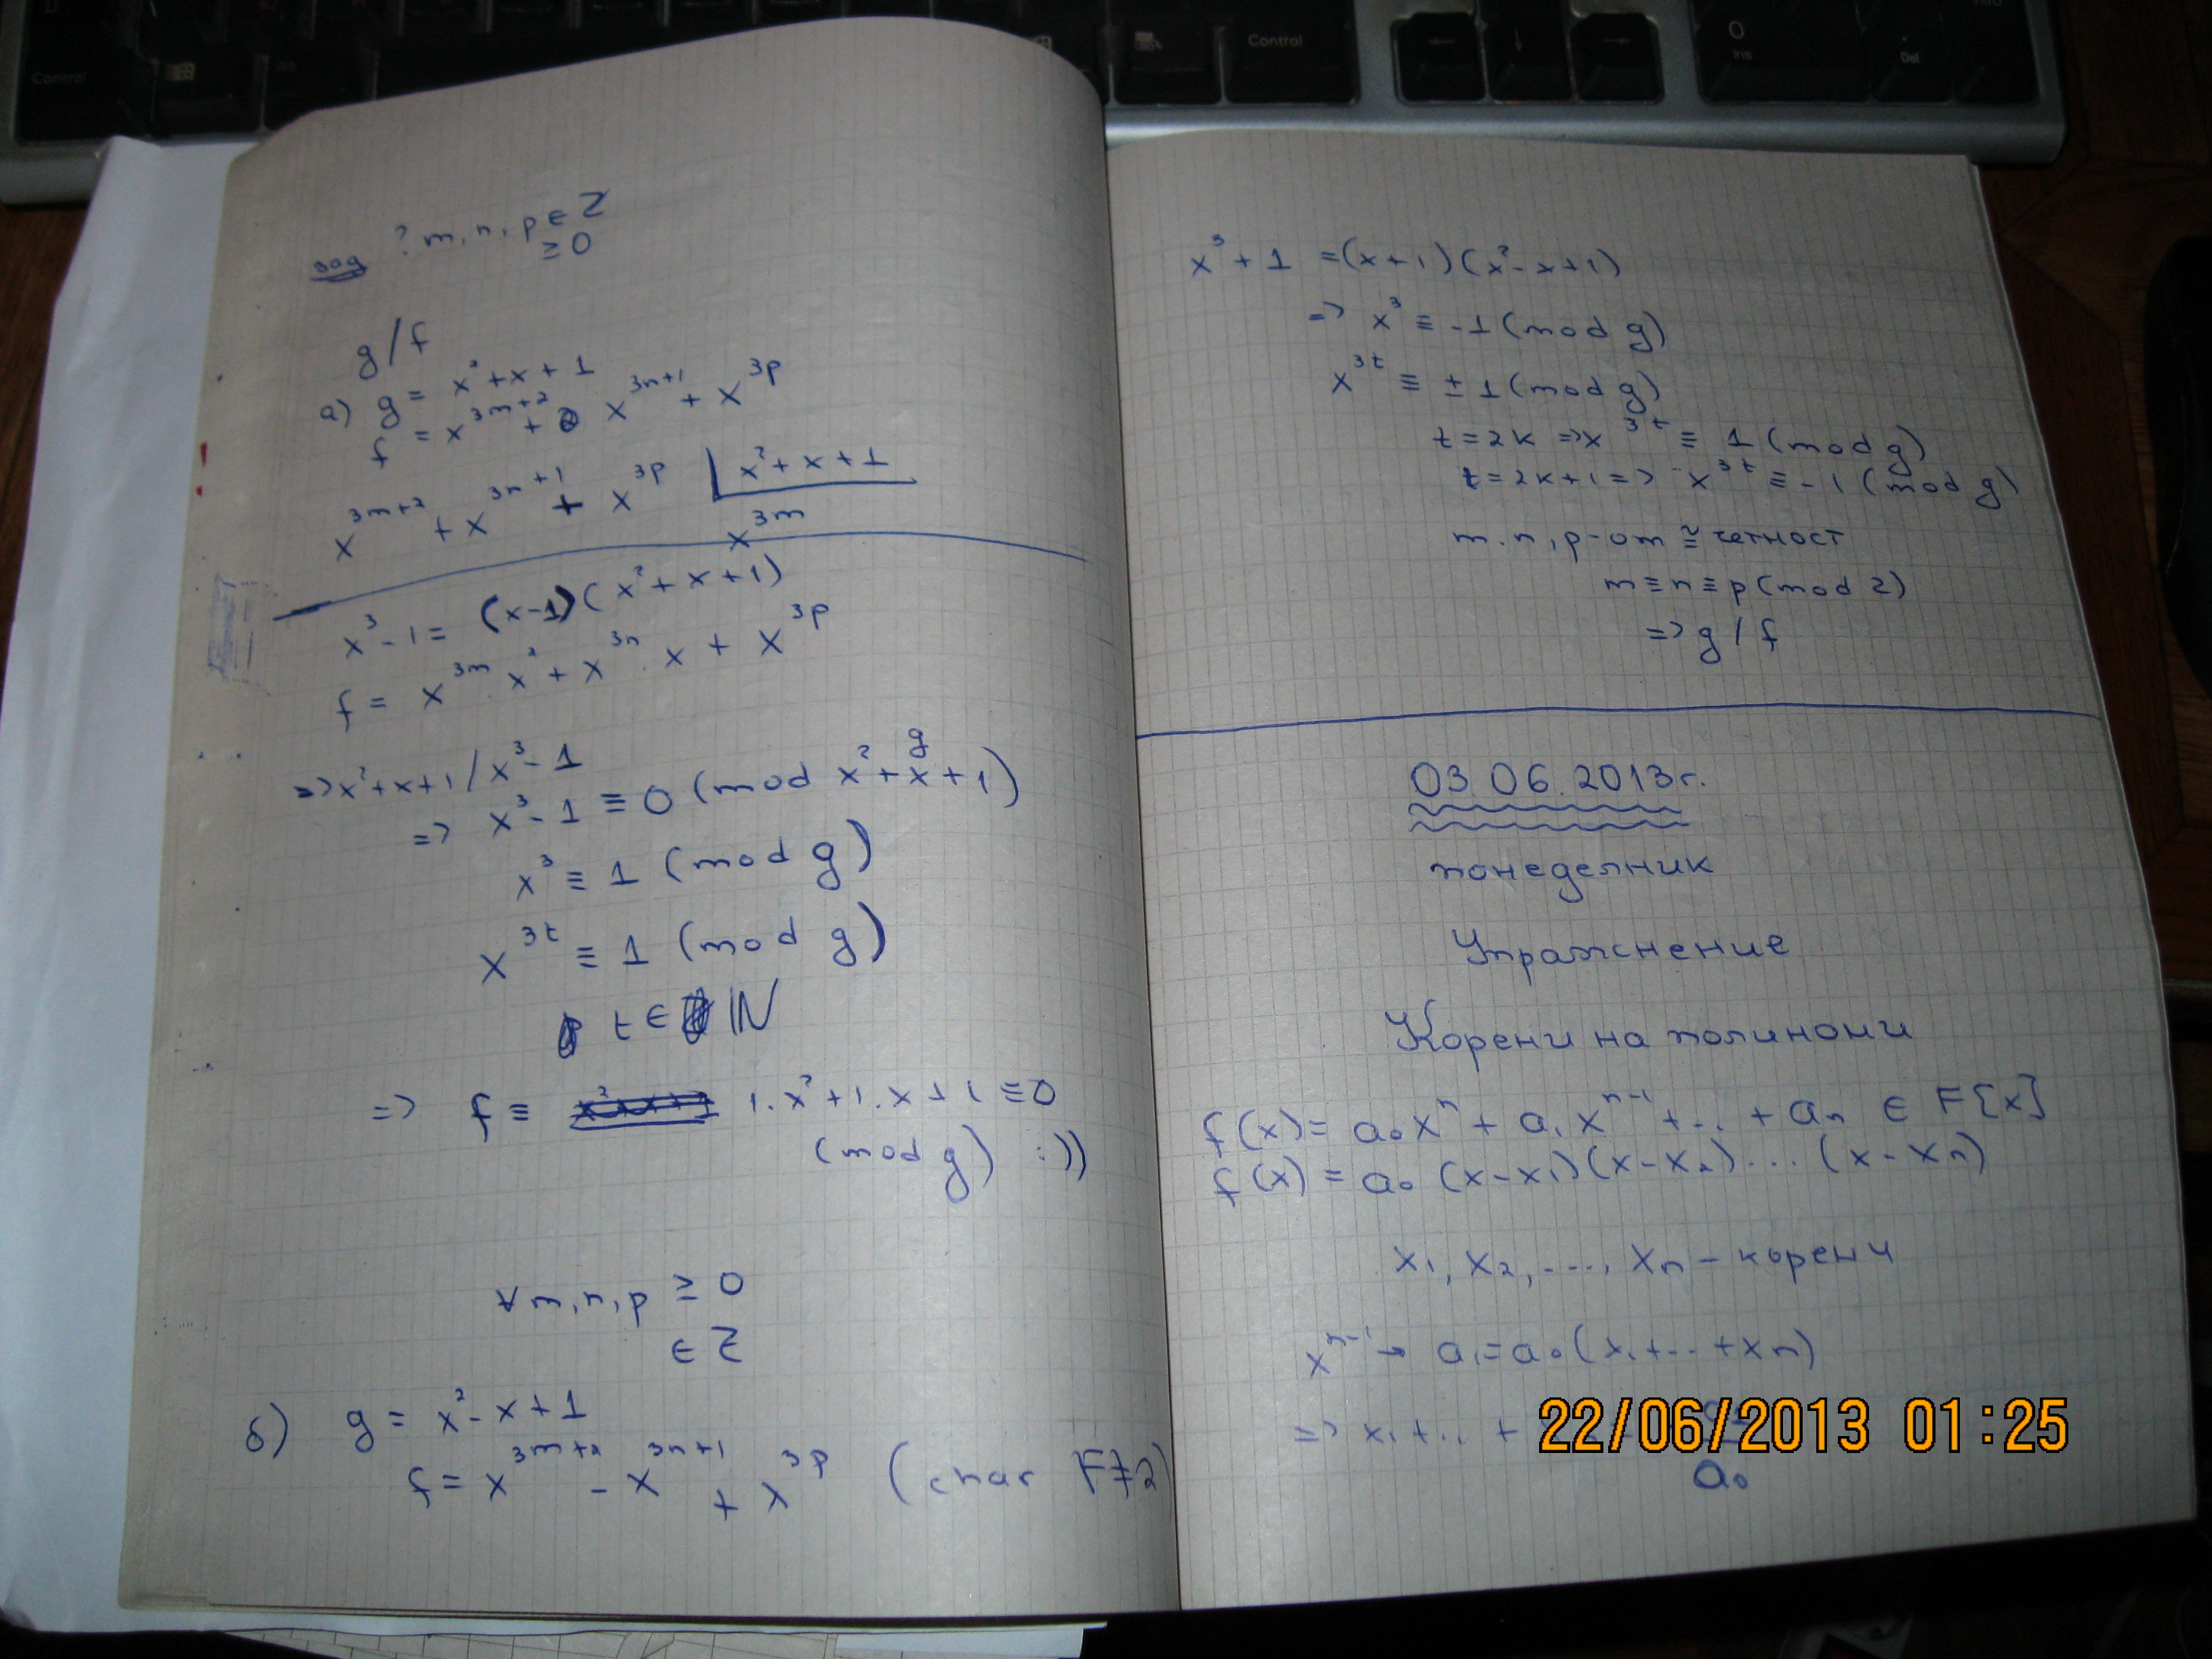 зад ? m, n, p ∈ Z
≥ 0
g / f
а) g = x² + x + 1
f = x^{3m+2} + x^{3n+1} + x^{3p}
x^{3m+2} + x^{3n+1} + x^{3p} | x² + x + 1
x^{3m}
x³ - 1 = (x-1)(x² + x + 1)
f = x^{3m}.x² + x^{3n}.x + x^{3p}
=> x² + x + 1 / x³ - 1
g
=> x³ - 1 ≡ 0 (mod x² + x + 1)
x³ ≡ 1 (mod g)
x^{3t} ≡ 1 (mod g)
t ∈ ℕ
=> f ≡ 1.x² + 1.x + 1 ≡ 0
(mod g) :))
∀ m, n, p ≥ 0
∈ Z
б) g = x² - x + 1
f = x^{3m+2} - x^{3n+1} + x^{3p} (char F≠2)
x³ + 1 = (x+1)(x² - x + 1)
=> x³ ≡ -1 (mod g)
x^{3t} ≡ ± 1 (mod g)
t = 2k => x^{3t} ≡ 1 (mod g)
t = 2k+1 => x^{3t} ≡ -1 (mod g)
m, n, p - от ≅ четност
m ≡ n ≡ p (mod 2)
=> g / f
03.06.2013г.
понеделник
Упражнение
Корени на полиноми
f(x) = a₀xⁿ + a₁x^{n-1} + ... + aₙ ∈ F[x]
f(x) = a₀(x-x₁)(x-x₂)...(x-xₙ)
x₁, x₂, ..., xₙ - корени
x^{n-1} → a₁ = a₀(x₁+...+xₙ)
=> x₁ + .. +
a₀
22/06/2013 01:25
Control
Alt
Control
0
Ins
Del